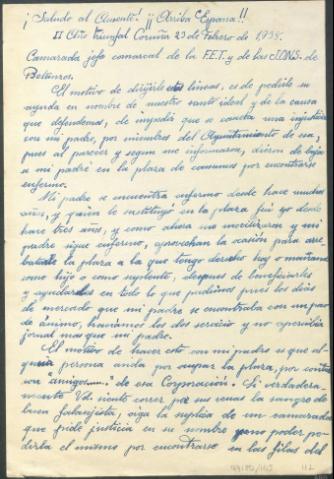 ¡Saludo al Ausente! ¡¡Arriba España!!
II Año Triunfal Coruña 23 de Febrero de 1938.
Camarada jefe comarcal de la F.E.T. y de las J.O.N.S. de
Betanzos.
El motivo de dirigirle estas lineas, es de pedirle su
ayuda en nombre de nuestro santo ideal y de la causa
que defendemos, de impedir que se cometa una injusticia
con mi padre, por miembros del Ayuntamiento de esa,
pues al parecer y segun me informaron, dieron de baja
a mi padre en la plaza de consumos por encontrarse
enfermo.
Mi padre se encuentra enfermo desde hace muchos
años, y quien le sustituyó en la plaza fui yo desde
hace tres años, y como ahora me movilizaron y mi
padre sigue enfermo, aprovechan la ocasión para arre-
batarle la plaza a la que tengo derecho hoy o mañana
como hijo o como suplente, despues de beneficiarles
y ayudarles en todo lo que pudimos pues los dias
de mercado que mi padre se encontraba con un poco
de animo, haciamos los dos servicio y no apercibia
jornal mas que mi padre.
El motivo de hacer esto con mi padre es que al-
guna persona anda por ocupar la plaza, por contar
con amigos de esa Corporación. Si verdadera-
mente Vd. siente correr por sus venas la sangre de
buen falangista, oiga la suplica de un camarada
que pide justicia en su nombre por no poder pe-
dirla el mismo por encontrarse en las filas del